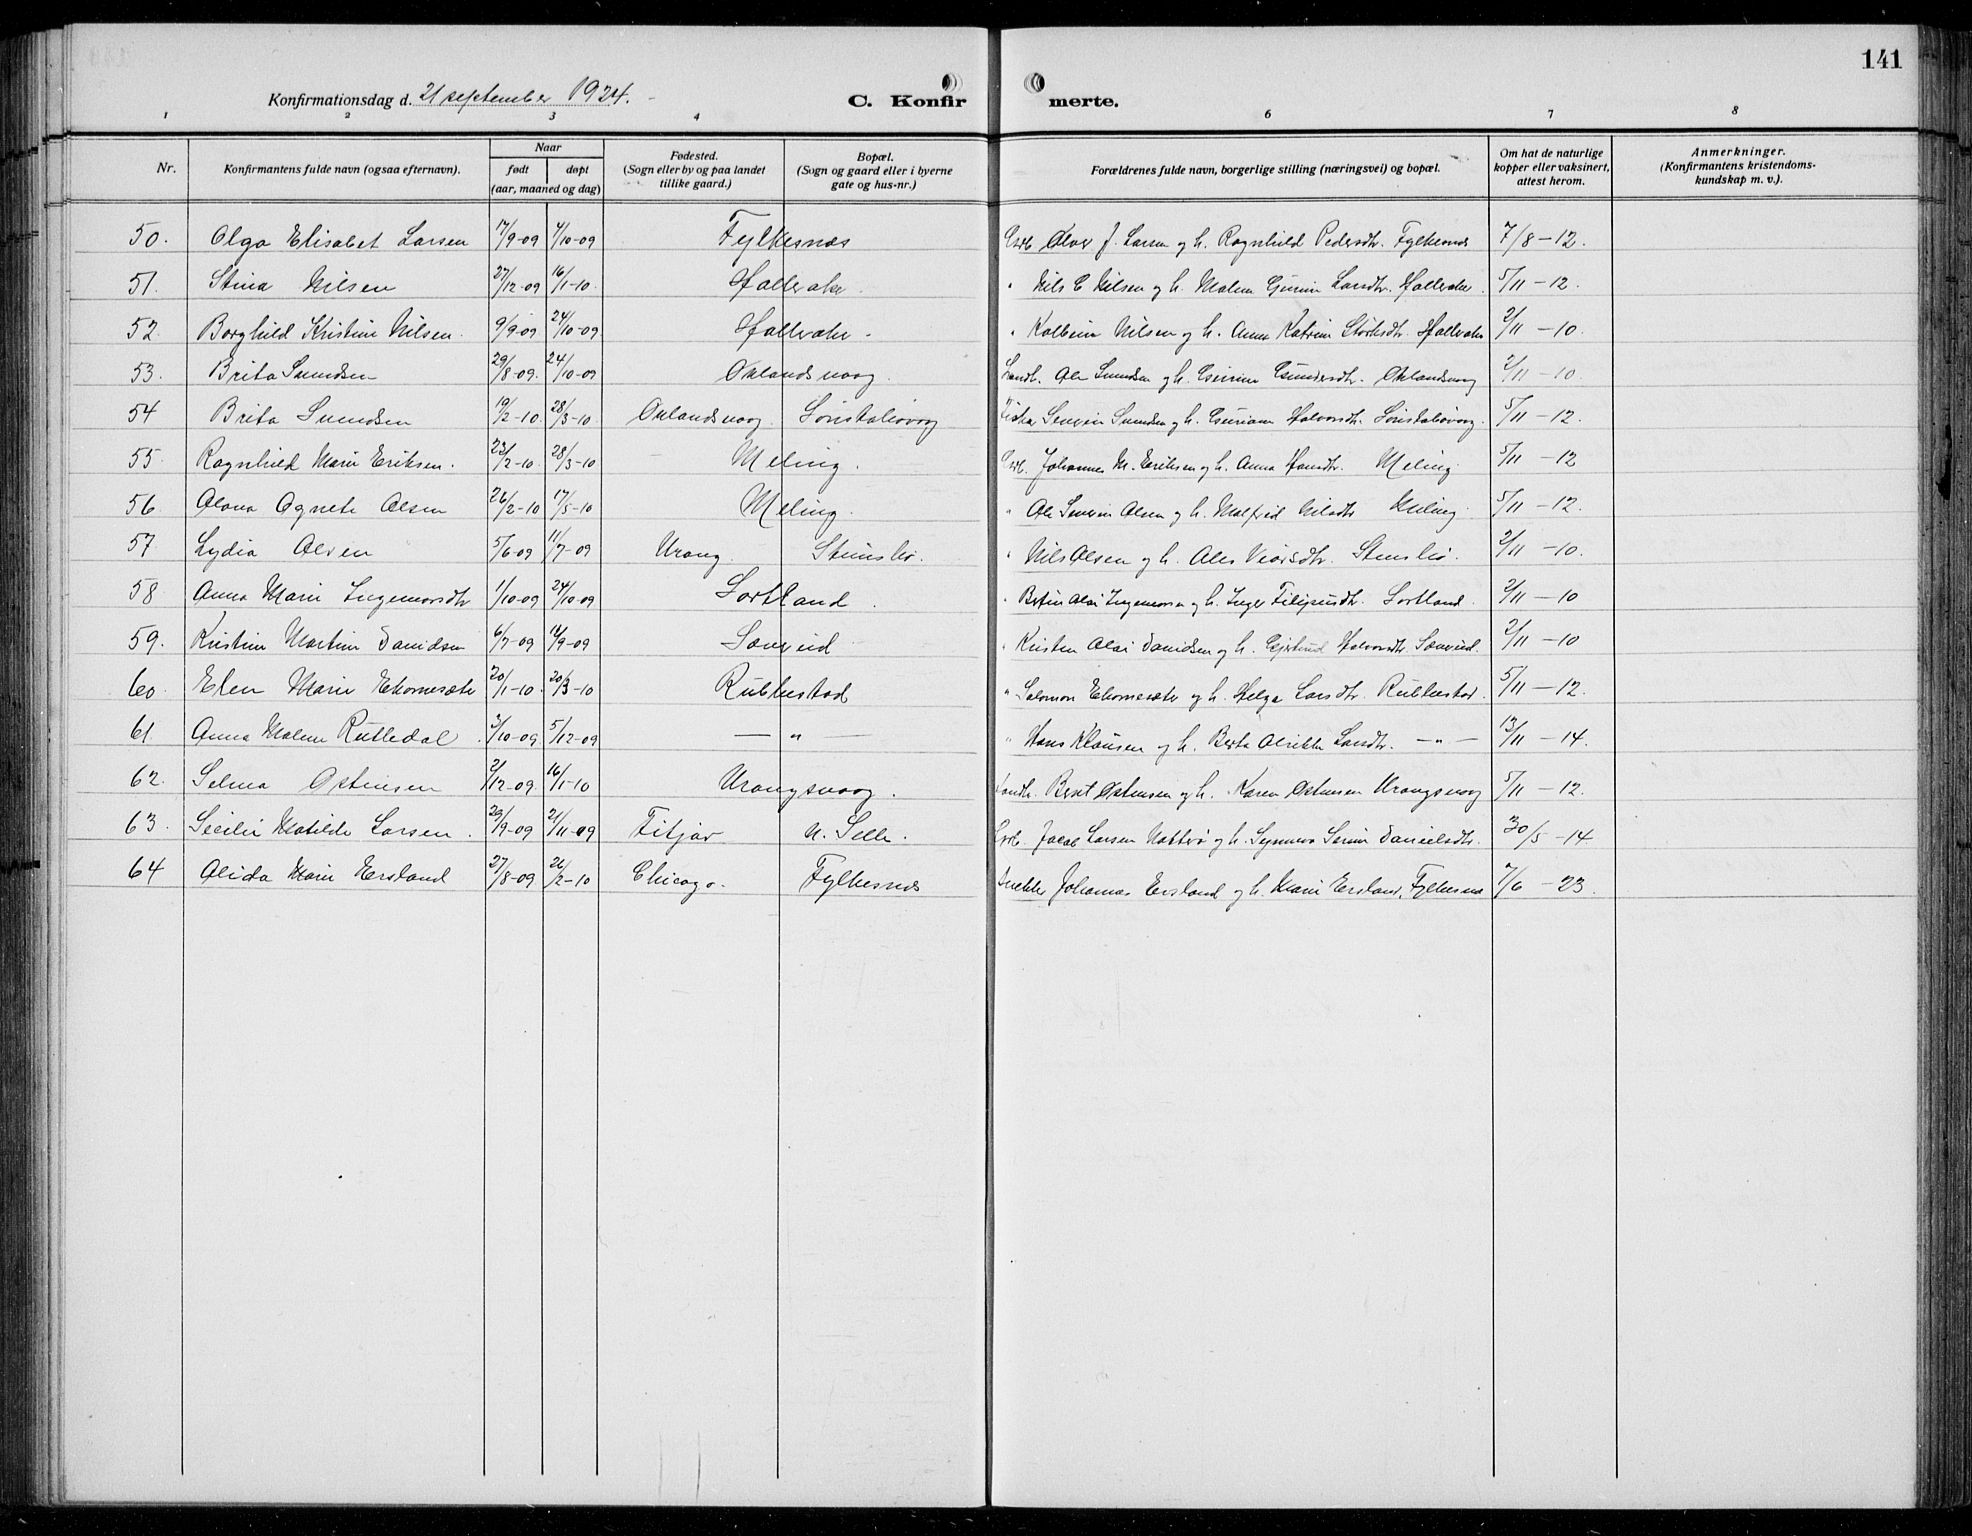 141
Konfirmationsdag d. 21 september 1924. C. Konfir merte.
1 2 3 4 6 7 8
Nr. Konfirmantens fulde navn (ogsaa efternavn). Naar født døpt (aar, maaned og dag) Fødested. (Sogn eller by og paa landet tillike gaard.) Bopæl. (Sogn og gaard eller i byerne gate og hus-nr.) Forældrenes fulde navn, borgerlige stilling (næringsvei) og bopæl. Om hat de naturlige kopper eller vaksinert, attest herom. Anmerkninger. (Konfirmantens kristendoms-kundskap m. v.).
50. Olga Elisabet Larsen 17/9-09 4/10-09 Fylkesnes Olav J. Larsen og h. Ragnhild Pedersdtr. Fylkesnes 7/8-12.
51. Stina Nilsen 27/12-09 16/1-10. Hallvaker " Nils C Nilsen og h. Malene Larsdtr. Hallvaker. 5/11-12.
52. Borghild Kristine Nilsen. 9/9-09 24/10-09 Hallvaker. " Kolbein Nilsen og h. Anna Katrine Hallvaker 2/11-10.
53. Brita 29/8-09. 24/10-09 Aklandsvaag. Landh. Ole og h. Aklandsvaag 2/11-10.
54 Brita 19/2-10. 28/3-10 Aklandsvaag. og h. Halvorsdtr. 5/11-12.
55. Ragnhild Marie Eriksen. 23/2-10. 28/3-10 Meling. Johannes M. Eriksen og h. Anna Hansdtr. Meling. 5/11-12
56 Agnete Olsen 26/2-10 17/5-10 Meling. " Ole Severin Olsen og h. Malfrid Nilsdtr Meling. 5/11-12.
57. Lydia 5/6-09 11/7-09 Urang. Stensbø. " Nils Olsen og h. Stensbø. 2/11-10.
58 Anna Marie Ingemarsdtr 1/10-09 24/10-09 Sortland. " Ingemarsen og h. Inger Sortland. 2/11-10
59. Kristine Martine Danidsen 6/7-09 12/9-09 Sanvid " Kristen Danidsen og h. Gjertrud Halvorsdtr. Sanvid. 2/11-10
60. Elen Marie Ekornesæter 20/1-10. 20/3-10 Rubbestad " Salomon Ekornesæter og h. Helga Larsdtr. Rubbestad. 5/11-12.
61. Anna Malene Rutledal. 3/10-09 5/12-09 — " — " Hans Klausen og h. Berta Larsdtr. — " — 13/11-14.
62. Selma Østensen 2/12-09. 16/1-10 Urangsvaag. Landh. Østensen og h. Karen Østensen Urangsvaag 5/11-12.
63. Secilie Matilde Larsen. 29/9-09 21/11-09 Fitjar N. Selle. Jacob Larsen og h. Synneva Danielsdtr. 30/5-14
64 Alida Marie Ersland 27/8-09 26/2-10 Chicago. Fylkesnes Snekker Johannes Ersland og h. Marie Ersland, Fylkesnes 7/6-23.